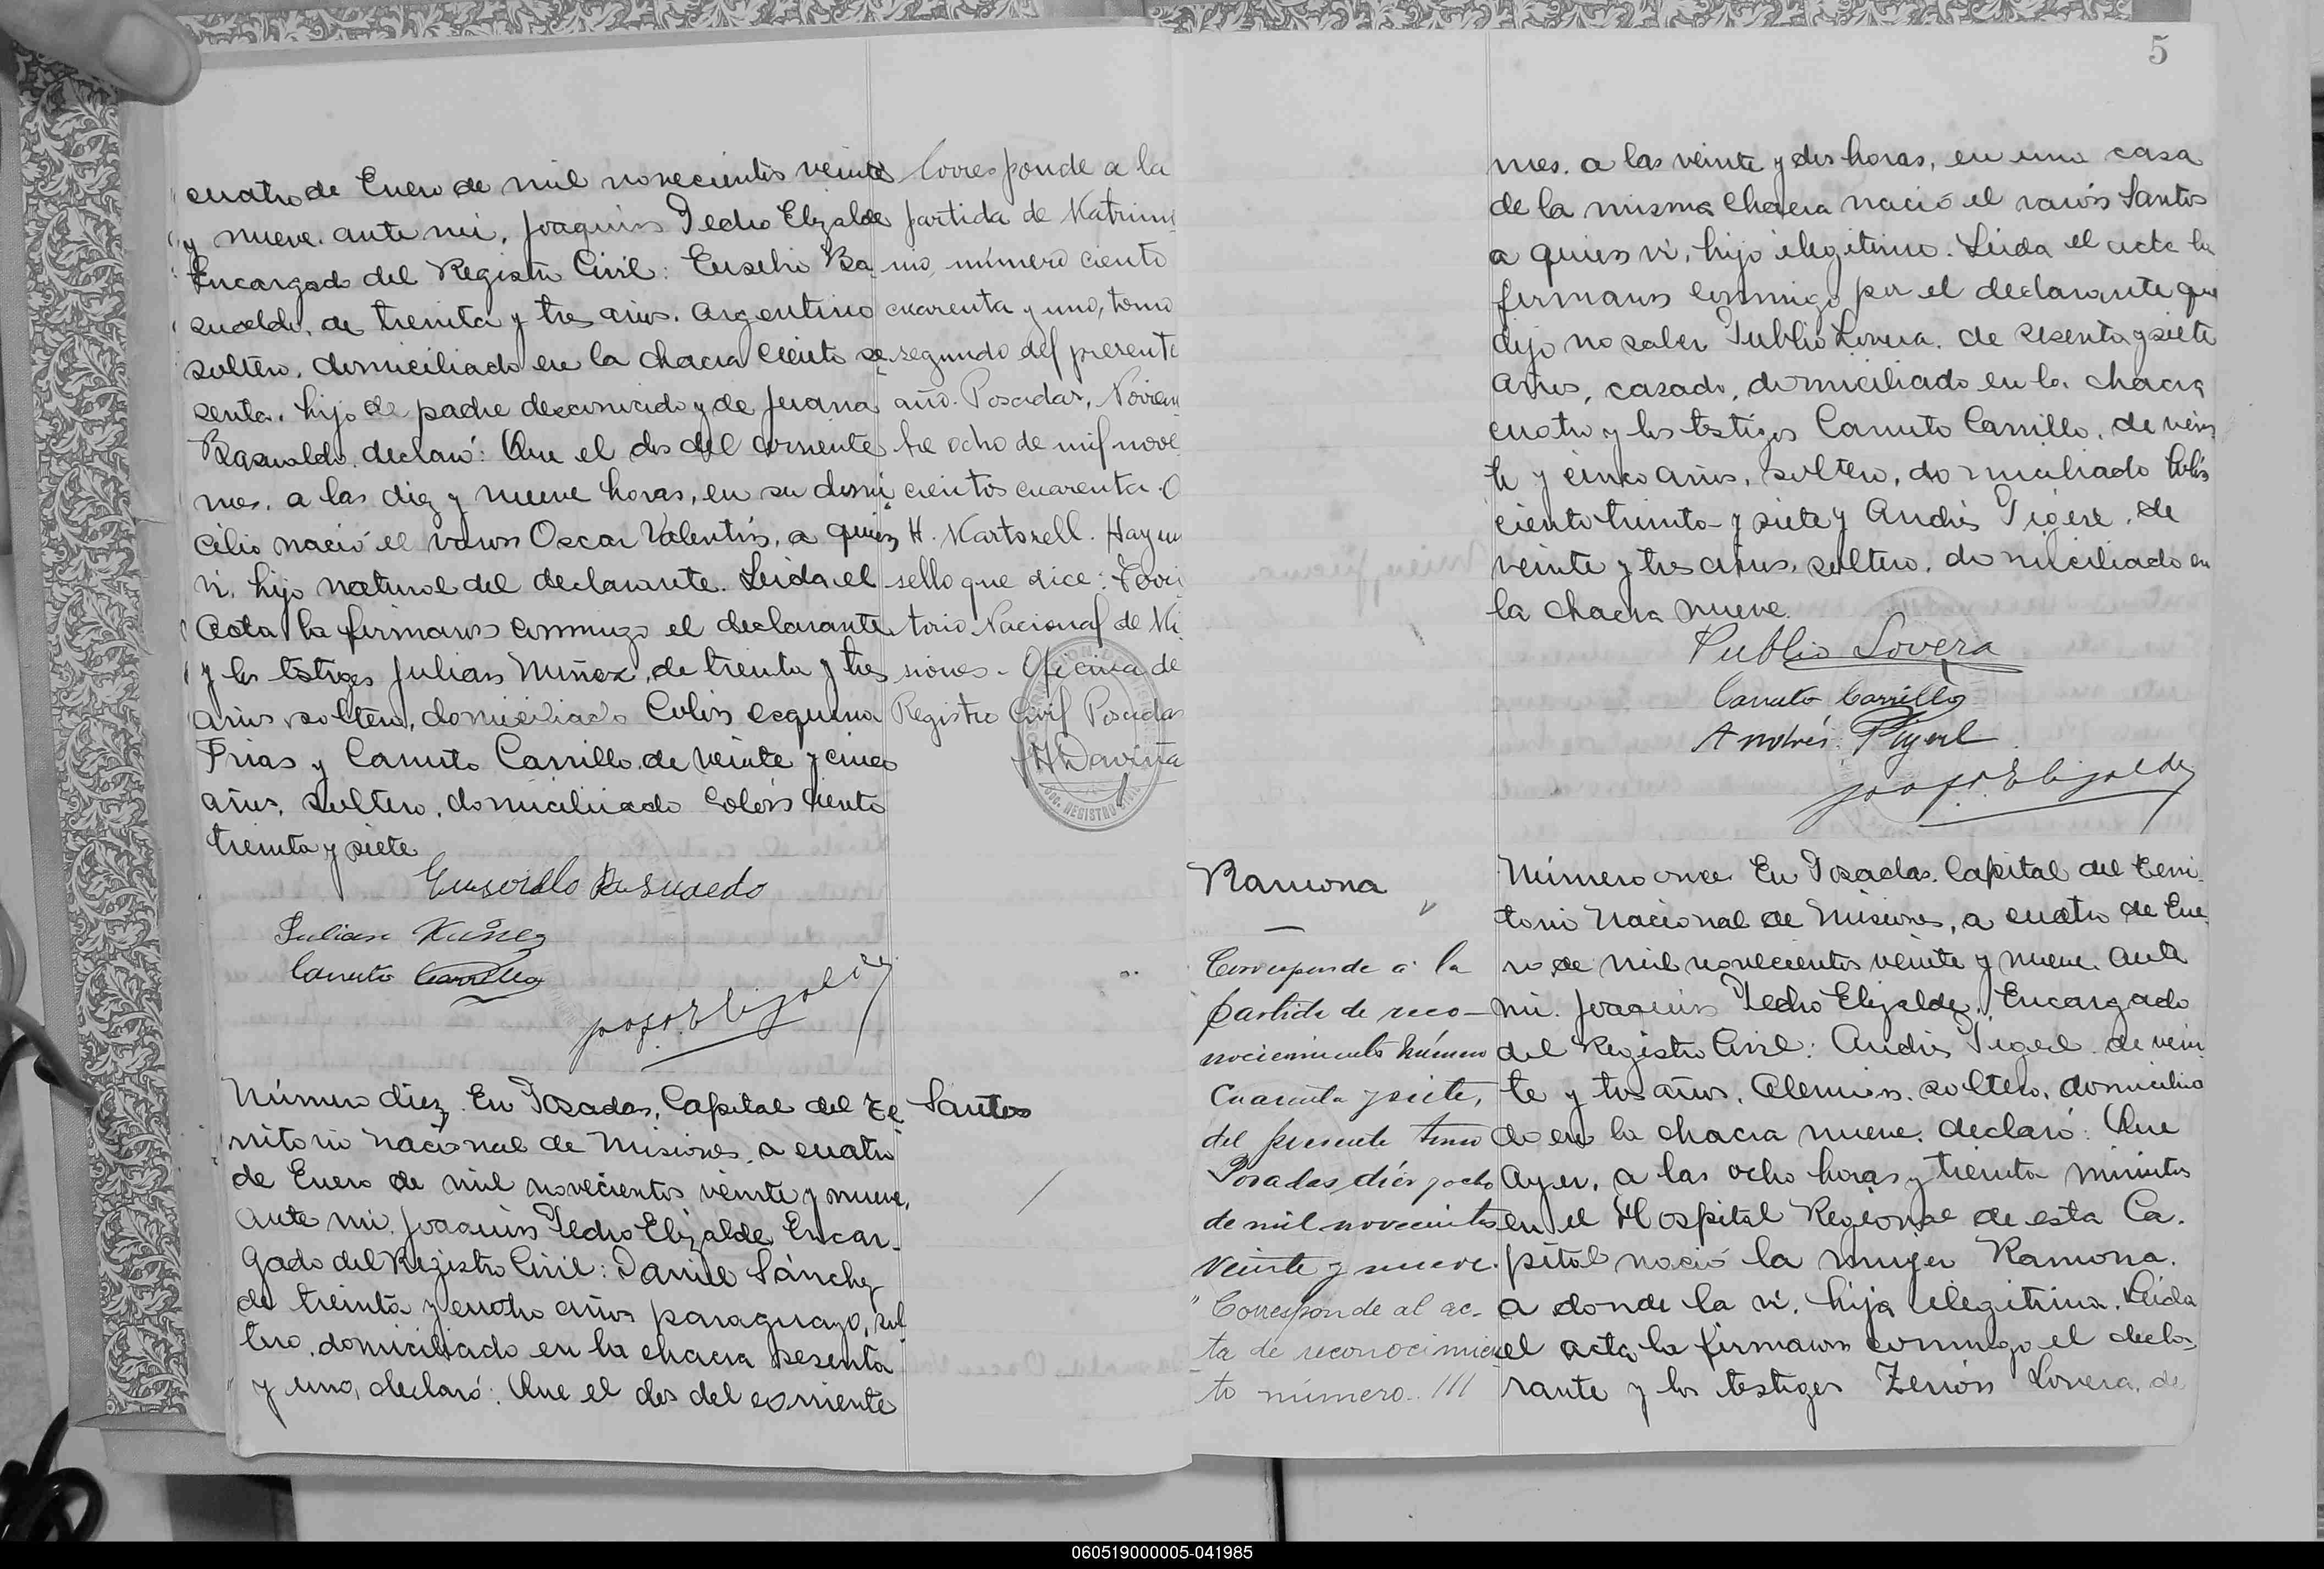 cuatro de Enero de mil novecientos veinte
y nueve. ante mi, Joaquin Pedro Elizalde
Encargado del Registro Civil: Eusebio Ba
sualdo, de treinta y tres años. Argentino
soltero, domiciliado en la chacra ciento se
senta. hijo de padre desconocido y de Juana
Basualdo, declaró: Que el dos del corriente
mes. a las diez y nueve horas, en su domi
cilio nació el varon Oscar Valentin, a quien
vi, hijo natural del declarante. Leida el
Acta la firmaron conmigo el declarante
y los testigos Julian Nuñez, de treinta y tres
años soltero, domiciliado Colón esquina
Frias y Canuto Carrillo, de veinte y cinco
años, soltero, domiciliado Colón ciento
treinta y siete
Julian Nuñez
Canuto Carrillo
Corresponde a la
partida de Matrimo
nio, número ciento
cuarenta y uno, tomo
segundo del presente
año. Posadas, Noviem
bre ocho de mil nove
cientos cuarenta. O
H. Martorell. Hay un
sello que dice: Terri
torio Nacional de Mi
siones - Oficina de
Registro Civil Posadas
HDaviña
Número diez. En Posadas, Capital del Te
rritorio Nacional de Misiones, a cuatro
de Enero de mil novecientos veinte y nueve,
Ante mi, Joaquin Pedro Elizalde Encar-
gado del Registro Civil: Daniel Sánchez
de treinta y cuatro años paraguayo, sol
tero, domiciliado en la chacra sesenta
y uno, declaró: Que el dos del corriente
Santos
5
mes. a las veinte y dos horas, en una casa
de la misma chacra nació el varón Santos
a quien vi, hijo ilegitimo. Leida el acta la
firmaron conmigo por el declarante que
dijo no saber Publio Lovera, de sesenta y siete
años, casado, domiciliado en la chacra
cuatro y los testigos Canuto Carrillo, de vein
te y cinco años, soltero, domiciliado Colón
ciento treinta y siete y Andrés Pigerl, de
veinte y tres años, soltero, domiciliado en
la chacra nueve.
Publio Lovera
Canuto Carrillo
Andrés
Ramona
Corresponde a la
partida de reco-
nocimiento número
Cuarenta y siete,
del presente tomo
Posadas, diez y ocho
de mil novecientos
Veinte y nueve.
"Corresponde al ac-
ta de reconocimien
to número 111
Número once En Posadas. Capital del Terri
torio Nacional de Misiones, a cuatro de Ene
ro de mil novecientos veinte y nueve. Ante
mi. Joaquin Pedro Elizalde, Encargado
del Registro Civil: Andrés Pigerl de vein
te y tres años, Aleman, soltero, domicilia
do en la chacra nueve, declaró: Que
Ayer, a las ocho horas y treinta minutos
en el Hospital Regional de esta Ca.
pital nació la mujer Ramona.
a donde la vi, hija ilegitima. Leida
el acta la firmaron conmigo el decla-
rante y los testigos Zenón Lovera, de
060519000005-041985